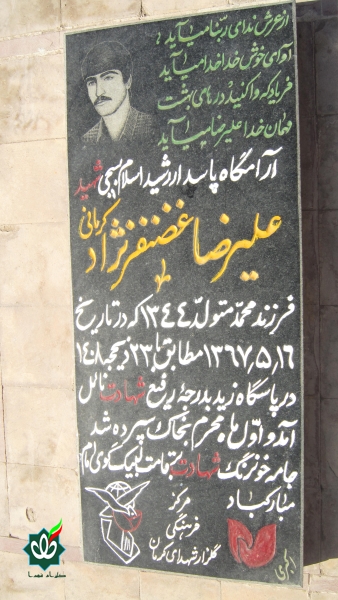 از عرش ندای ربنا میآید
آوای خوش خدا خدا میآید
فریاد که وا کنید درهای بهشت
مهمان خدا علیرضا میآید
آرامگاه پاسدار رشید اسلام بسیجی شهید
علیرضا غضنفرنژاد کرمانی
فرزند محمد متولد ۱۳۴۴ که در تاریخ
۱۳۶۷٫۵٫۱۶ مطابق با ۲۳ ذیحجه ۱۴۰۸
در پاسگاه زید بدرجه رفیع شهادت نائل
آمد و اول ماه محرم بخاک سپرده شد
جامه خونرنگ شهادت بقامت لبیک گوی امام
مبارکباد
مرکز
فرهنگی
گلزار شهدای کرمان
اکبری